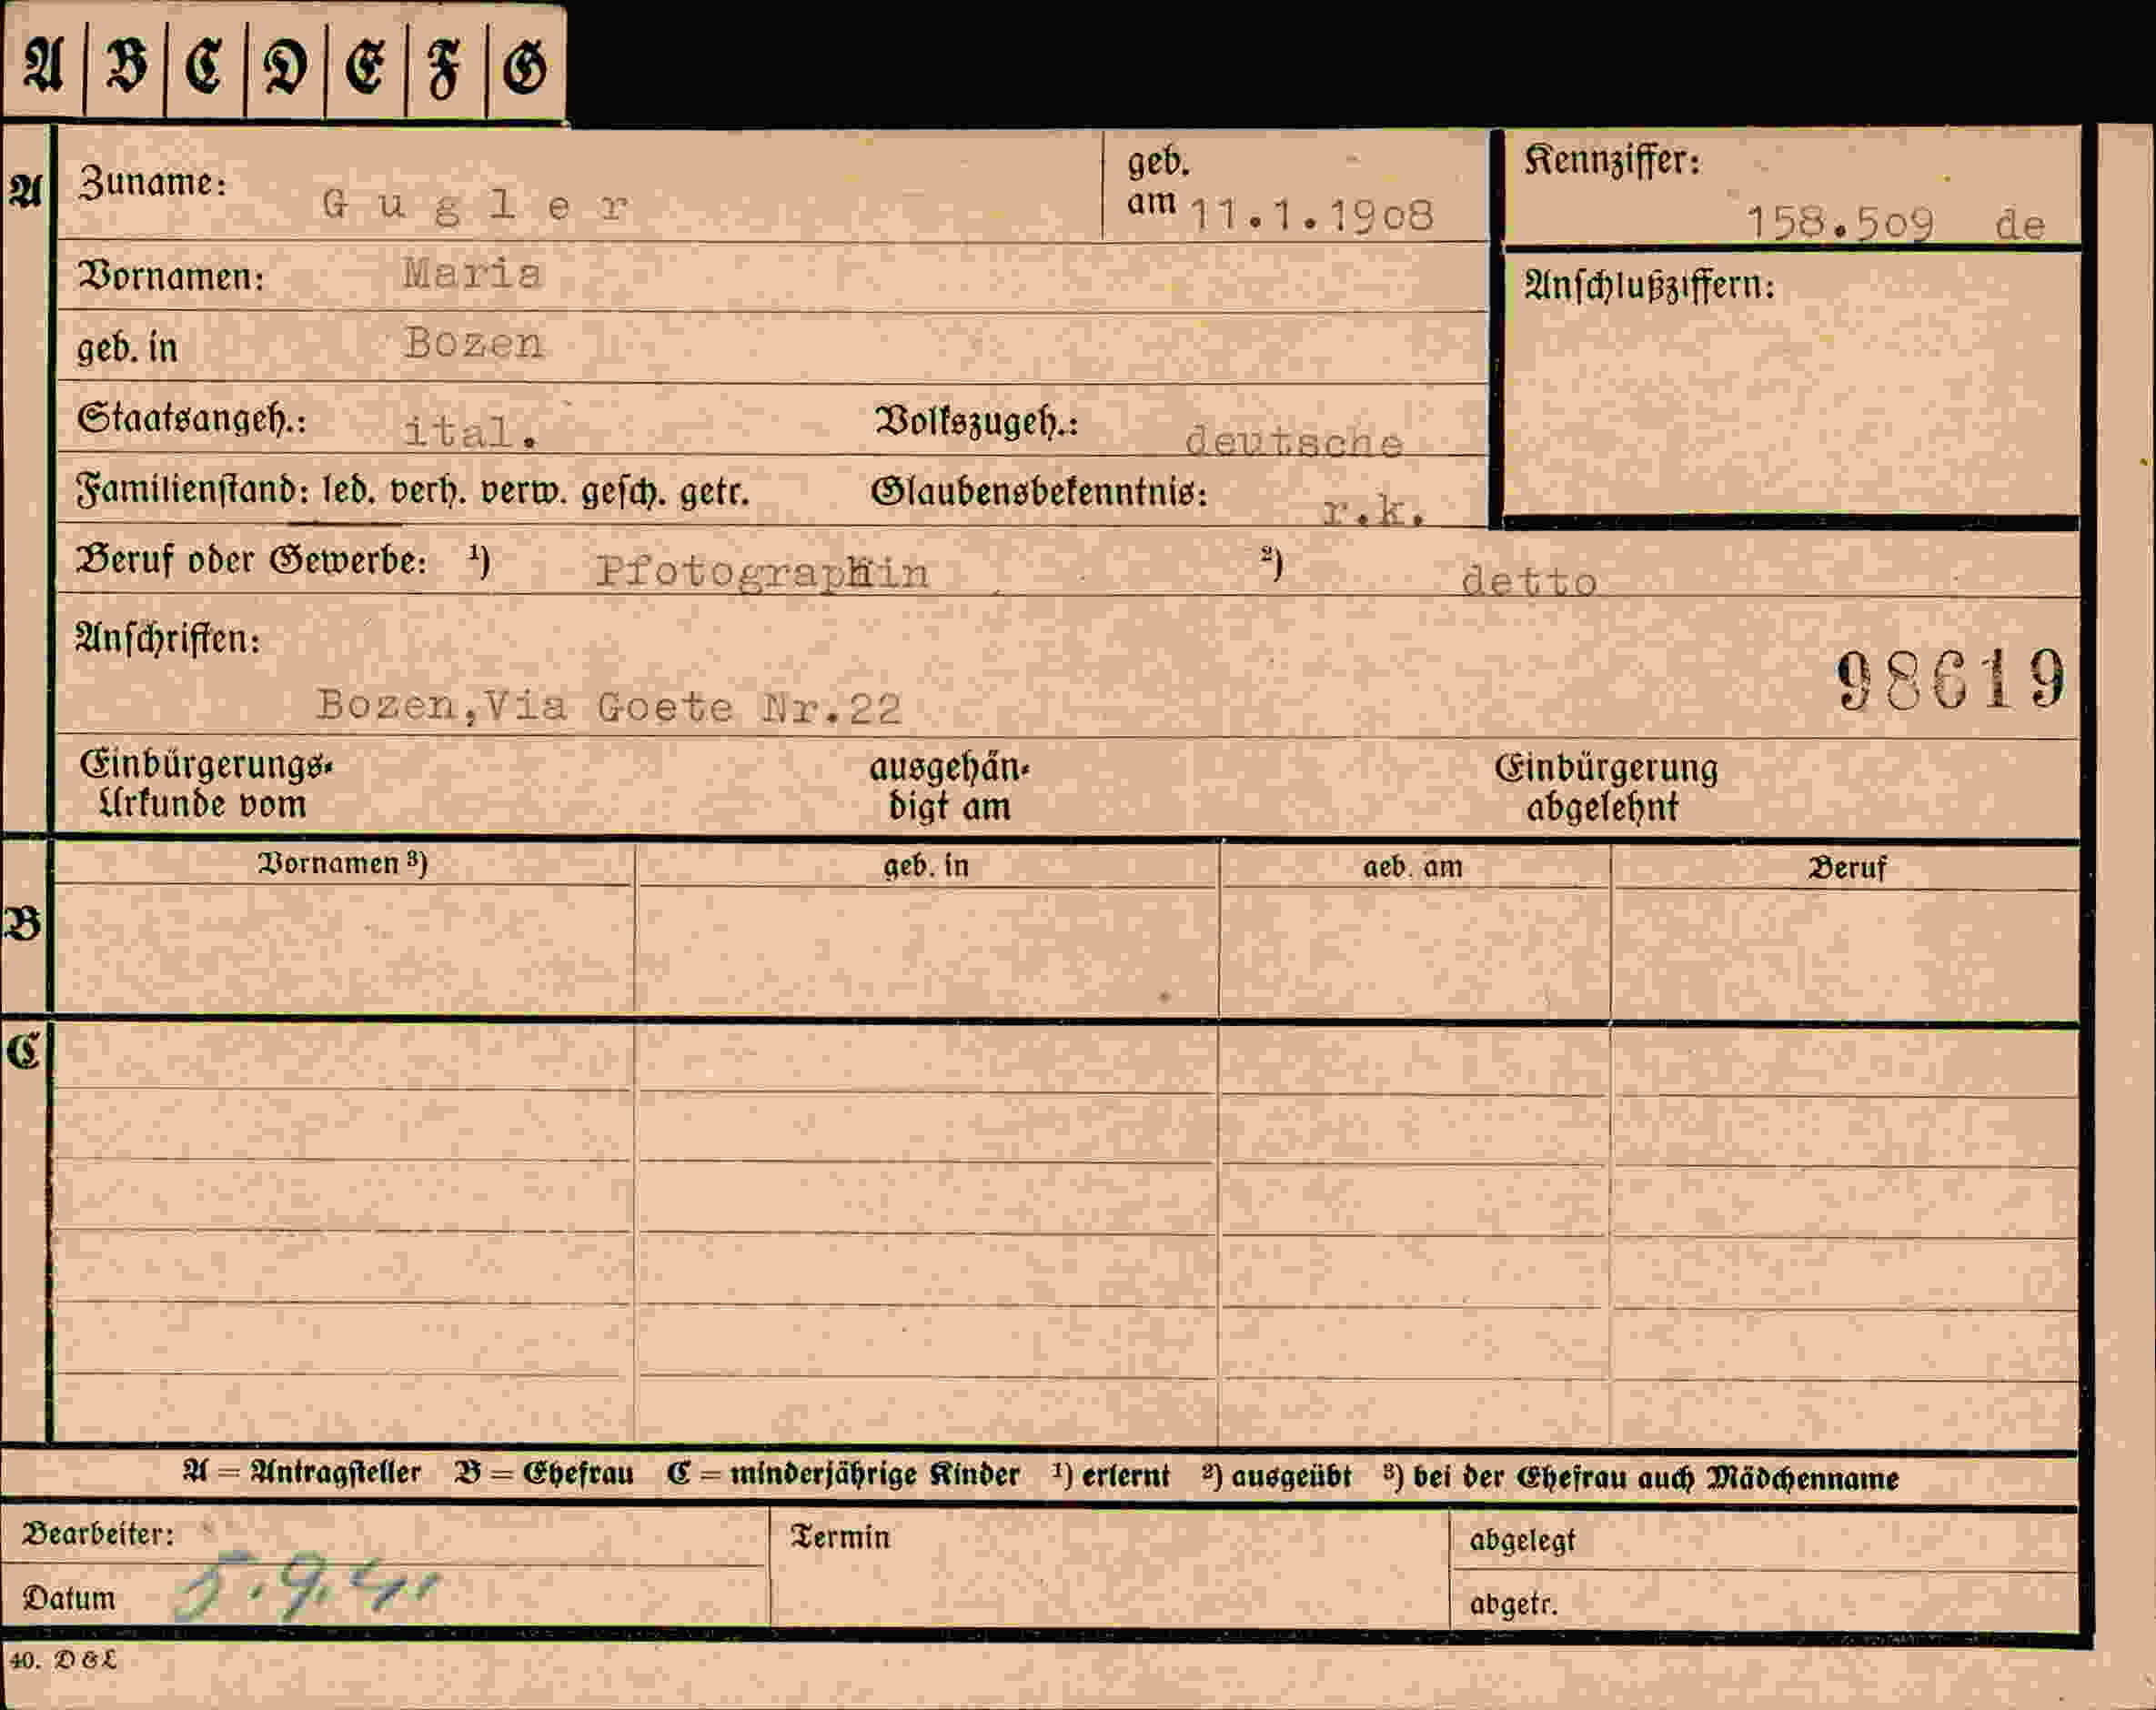 A | B | C | D | E | F | G
A Zuname: Gugler geb. am 11.1.1908 Kennziffer: 158.509 de
Vornamen: Maria Anschlußziffern:
geb. in Bozen
Staatsangeh.: ital. Volkszugeh.: deutsche
Familienstand: led. verh. verw. gesch. getr. Glaubensbekenntnis: r.k.
Beruf oder Gewerbe: ¹) Pfotographin ²) detto
Anschriften:
98619
Bozen,Via Goete Nr.22
Einbürgerungs- ausgehän- Einbürgerung
Urkunde vom digt am abgelehnt
Vornamen ³) geb. in geb. am Beruf
B
C
A = Antragsteller B = Ehefrau C = minderjährige Kinder ¹) erlernt ²) ausgeübt ³) bei der Ehefrau auch Mädchenname
Bearbeiter: Termin abgelegt
Datum 5.9.41 abgetr.
40. D & L